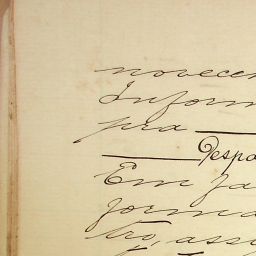 novecen
Inform
pra
Despa
Em fa
forma
tro, assi